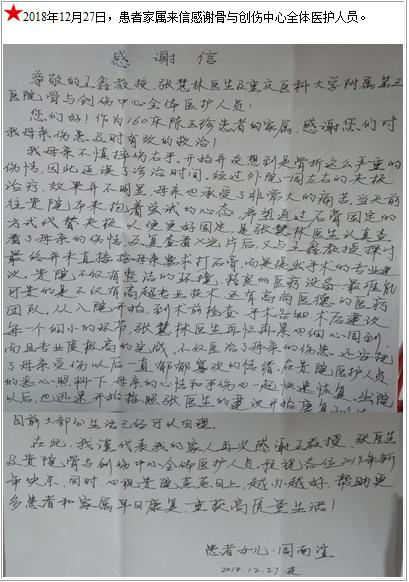 ★2018年12月27日，患者家属来信感谢骨与创伤中心全体医护人员。
感谢信
尊敬的王鑫教授、张慧林医生及重庆医科大学附属第三
医院骨与创伤中心全体医护人员：
您们好！作为160床陈玉珍患者的家属，感谢您们对
我母亲伤患及时有效的救治！
我母亲不慎摔伤右手，开始并没想到是骨折这么严重的
伤情，因此延误了诊治时间，经过外院一周左右的夹板
治疗，效果并不明显，母亲也承受了非常大的痛苦，当天前
往贵院本来抱着尝试的心态，并想通过石膏固定的
方式代替夹板，以便更好固定，是张慧林医生认真查
看了母亲的伤情，反复查看X光片后，又与王鑫教授探讨，
最终并未直接按母亲要求打石膏，而是提出手术的专业建
议。贵院不仅有整洁的环境，精良的医疗设备，最难能
可贵的是不仅有高超专业技术，还有高尚医德的医疗
团队，从入院开始，到术前检查、手术告知、术后建议
每一个细小的环节，张慧林医生
而且专业度极高的完成，不仅医治了母亲的伤患，还
了母亲受伤以后一直郁郁寡欢的情绪，在贵院医护人员
的悉心照料下母亲的心情和手伤也一起快速恢复，出院
以后，也
目前大部分生活已经可以自理。
在此，我谨代表我的家人再次感谢王教授、张医生
及贵院骨与创伤中心全体医护人员，祝福各位2019年新
年快乐，同时，心祝贵院蒸蒸日上，越办越好，帮助更
多患者和家属早日康复，重获高质量生活！
患者女儿：周南
2018.12.27